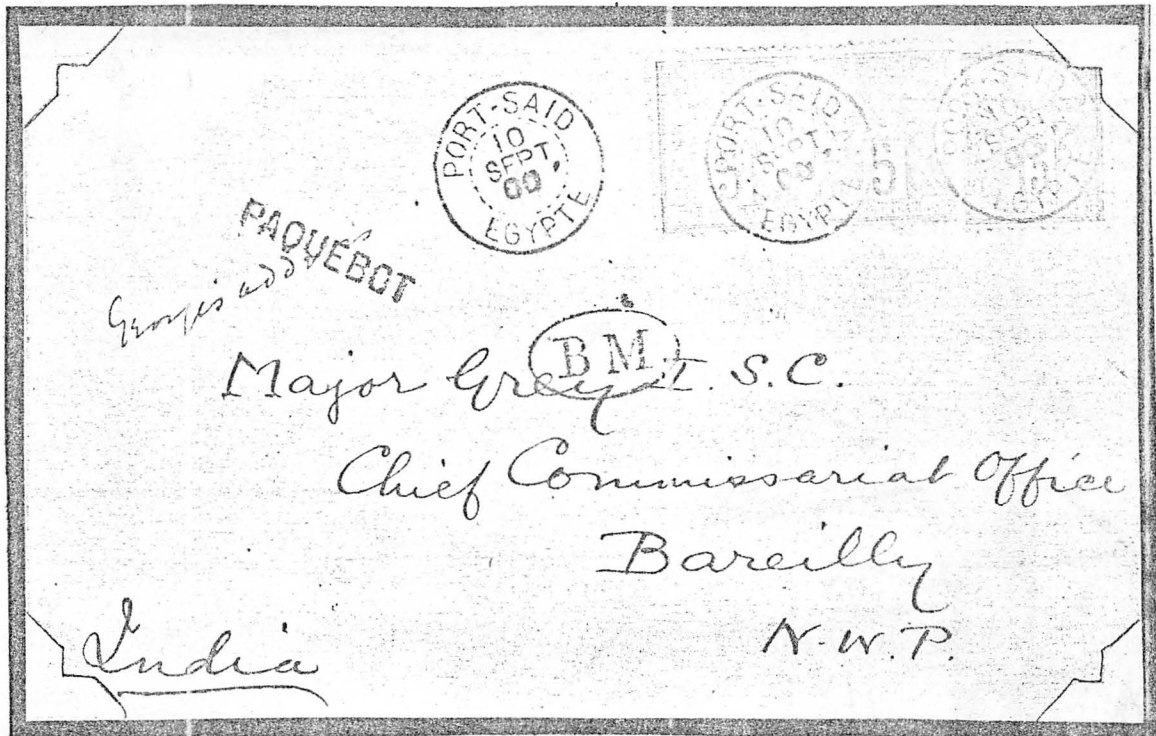 PORT-SAID
10
SEPT
00
EGYPTE
PORT-SAID
10
SEPT
00
EGYPTE
5
PORT-SAID
SEPT
EGYPTE
PAQUEBOT
BM
Major Grey I.S.C.
Chief Commissariat Office
Bareilly
N.W.P.
India